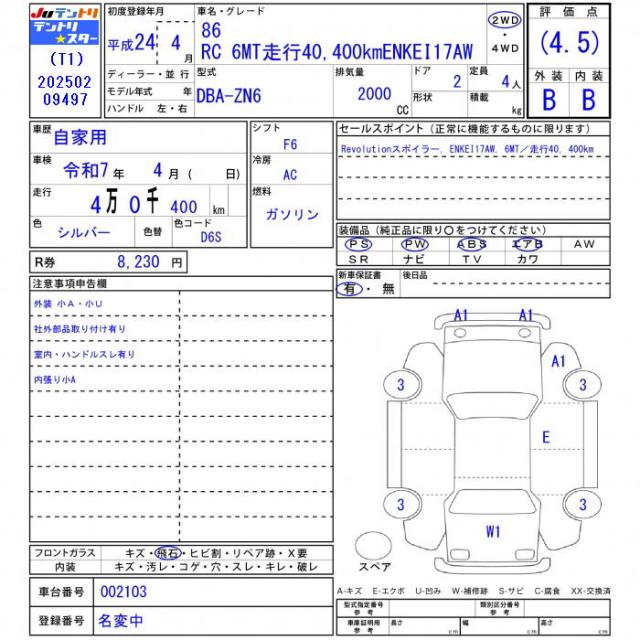 Juテントリ
テントリ★スター
(T1)
202502
09497
初度登録年月
平成24年 4月
車名・グレード
86
RC 6MT走行40,400kmENKEI17AW
2WD
・
4WD
評価点
(4.5)
外装 内装
B B
ディーラー・並行
モデル年式 年
ハンドル 左・右
型式
DBA-ZN6
排気量
2000
CC
ドア 2
形状
定員 4人
積載 kg
車歴
自家用
車検
令和7年 4月( 日)
走行
4万0千400 km
色
シルバー
色替
色コード
D6S
シフト
F6
冷房
AC
燃料
ガソリン
R券 8,230 円
セールスポイント(正常に機能するものに限ります)
Revolutionスポイラー, ENKEI17AW, 6MT/走行40,400km
装備品(純正品に限り○をつけてください)
PS PW ABS エアB AW
SR ナビ TV カワ
新車保証書
有・無
後日品
注意事項申告欄
外装 小A・小U
社外部品取り付け有り
室内・ハンドルスレ有り
内張り小A
A1 A1
A1
3 3
E
3 3
W1
スペア
フロントガラス キズ・飛石・ヒビ割・リペア跡・X要
内装 キズ・汚レ・コゲ・穴・スレ・キレ・破レ
車台番号 002103
登録番号 名変中
A-キズ E-エクボ U-凹み W-補修跡 S-サビ C-腐食 XX-交換済
型式指定番号
参考
類別区分番号
参考
車庫証明用
参考
長さ cm
幅 cm
高さ cm